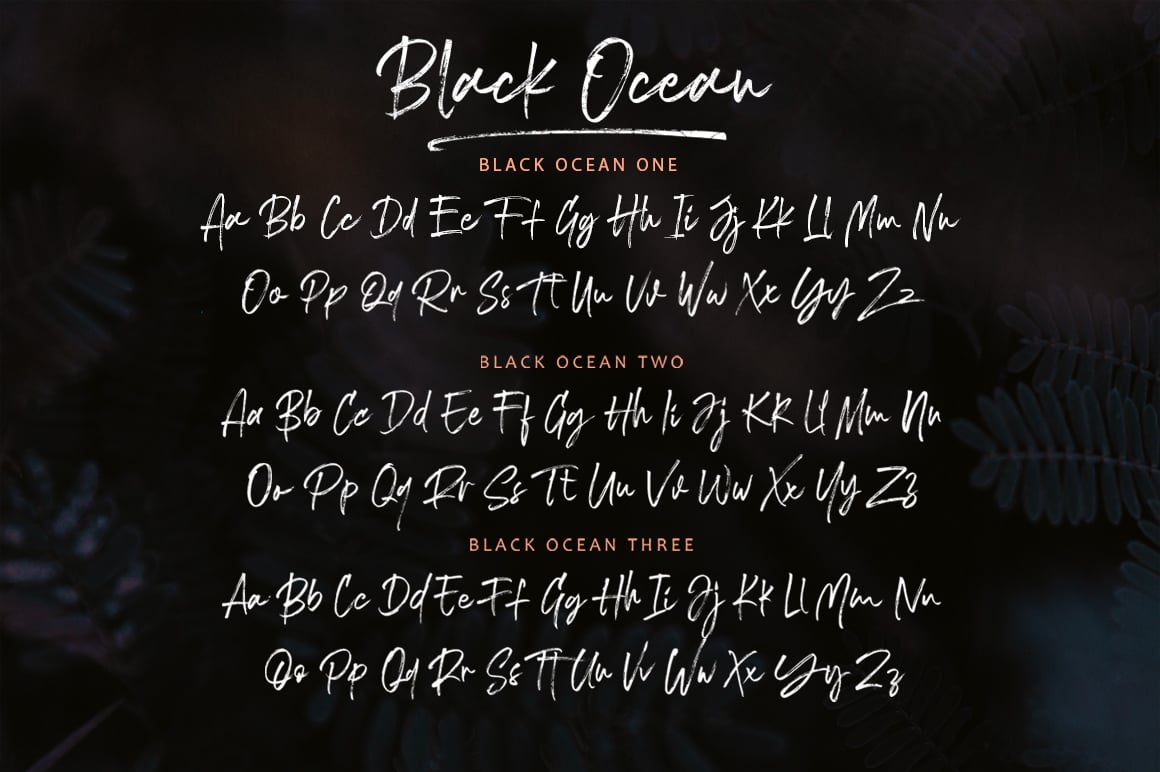 Black Ocean
BLACK OCEAN ONE
Aa Bb Cc Dd Ee Ff Gg Hh Ii Jj Kk Ll Mm Nn
Oo Pp Qq Rr Ss Tt Uu Vv Ww Xx Yy Zz
BLACK OCEAN TWO
Aa Bb Cc Dd Ee Ff Gg Hh Ii Jj Kk Ll Mm Nn
Oo Pp Qq Rr Ss Tt Uu Vv Ww Xx Yy Zz
BLACK OCEAN THREE
Aa Bb Cc Dd Ee Ff Gg Hh Ii Jj Kk Ll Mm Nn
Oo Pp Qq Rr Ss Tt Uu Vv Ww Xx Yy Zz